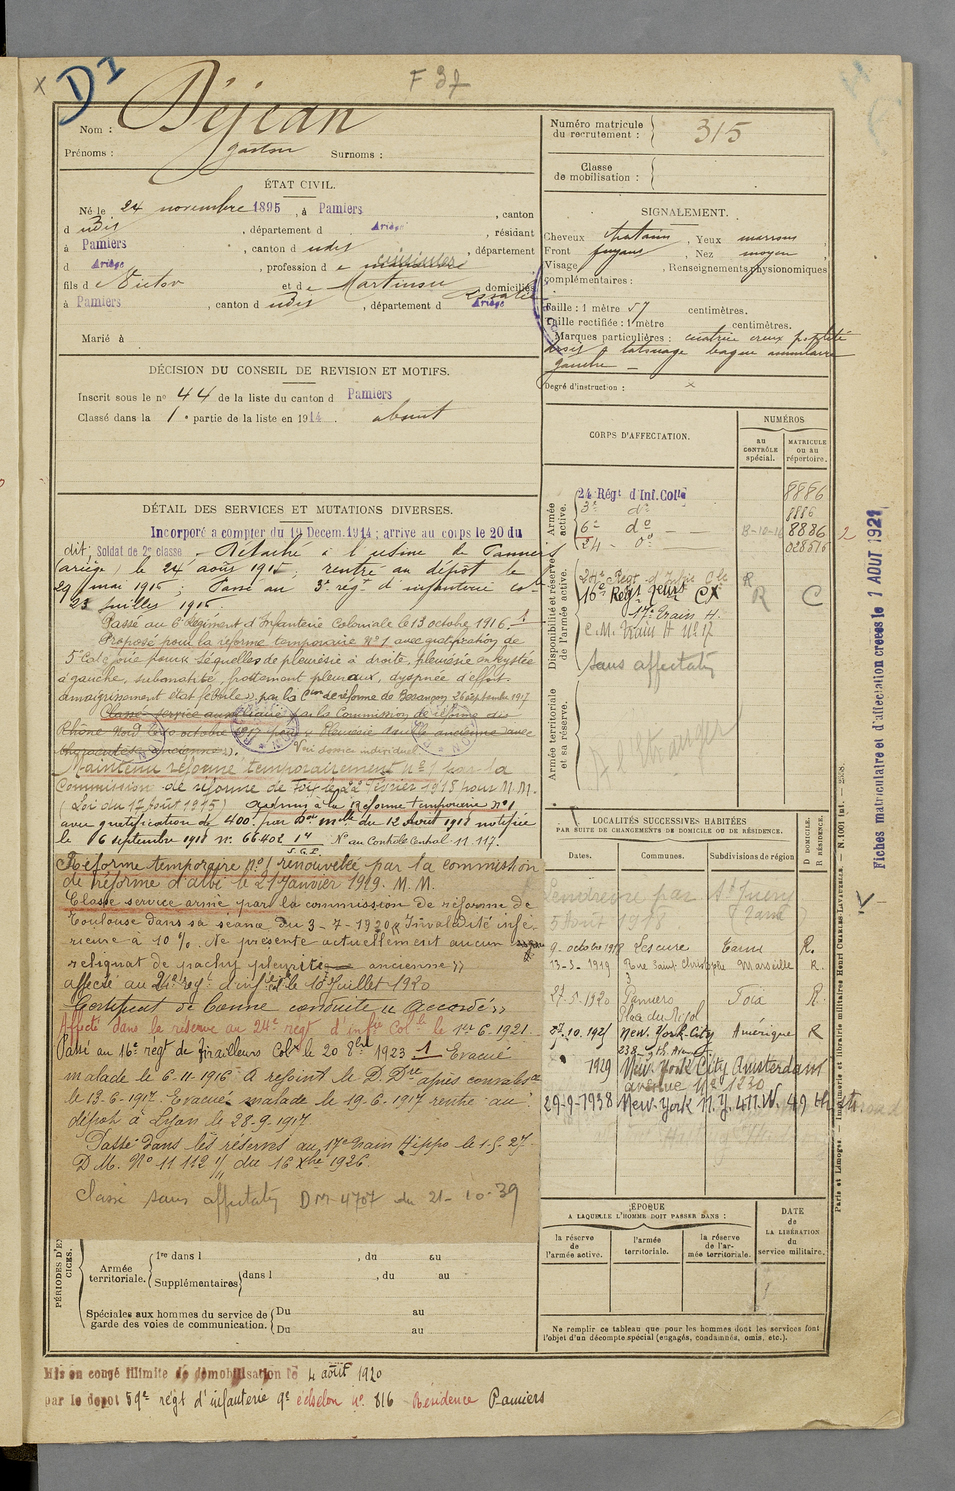 F 37
X D1
Nom : Déjean
Prénoms : Gaston Surnoms :
ÉTAT CIVIL.
Né le 24 novembre 1895, à Pamiers, canton
d udit, département d Ariège, résidant
à Pamiers, canton d udit, département
d Ariège, profession de
fils d e Victor et de Martinou, domiciliés
à Pamiers, canton d udit, département d Ariège
Marié à
DÉCISION DU CONSEIL DE REVISION ET MOTIFS.
Inscrit sous le n° 44 de la liste du canton d Pamiers
Classé dans la 1e partie de la liste en 1914. absent
DÉTAIL DES SERVICES ET MUTATIONS DIVERSES.
Incorporé a compter du 19 Decem. 1914; arrive au corps le 20 du
dit; Soldat de 2e classe - Détaché à l'usine de Pamiers
(ariège) le 24 août 1915; rentré au dépôt le
29 mai 1916, Passé au 3e régt d'infanterie Cole
23 Juillet 1916.
Passé au 6e Régiment d'Infanterie Coloniale le 13 octobre 1916. 1
Proposé pour la réforme temporaire N°1 avec gratification de
5e Catégorie pour "Séquelles de pleurésie à droite, pleurésie enkystée
à gauche, submatité, frottement pleuraux, dyspnée d'effort.
amaigrissement état fébrile", par la Con de réforme de Besançon 26 septembre 1917
Classé service auxiliaire par la Commission de réforme du
Rhône Nord le 10 octobre 1917 pour "Pleurésie double ancienne avec
anciennes". Voir dossier individuel
Maintenu réformé temporairement n°1 par la
Commission de réforme de Foix le 22 février 1918 pour M.M.
(Loi du 17 Août 1915) Admis à la Réforme temporaire N°1
avec gratification de 400f par Don Mlle du 12 Août 1918 notifiée
le 16 septembre 1918 N° 66402 1° S.G.P. N° au Contrôle Central 11.117.
Réforme temporaire N°1 renouvelée par la commission
de réforme d'albi le 21 Janvier 1919. M.M.
Classé service armé par la commission de réforme de
Toulouse dans sa séance du 3-7-1920 "Invalidité infé-
rieure à 10%. Ne présente actuellement aucun
reliquat de pachy pleurite ancienne"
affecté au 24e régt d'infie Cle le 10 Juillet 1920
Certificat de Bonne conduite "Accordé"
Affecté dans la réserve au 24e regt d'infie Colle le 1er 6.1921.
Passé au 16e régt de Tirailleurs Colx le 20 8bre 1923 1 Evacué
malade le 6-11-1916 A rejoint le D. Dre après convalesce
le 13-6-1917. Evacué malade le 19-6-1917 rentre au
dépôt à Lyon le 28-9-1917
Passé dans les réserves au 17e train Hippo le 1-5-27.
D.M. N° 11 112 1/11 du 16 Xbre 1926.
Classé sans affectation DM 4707 du 21-10-39
PÉRIODES D'EX
CICES.
Armée territoriale. 1re dans l , du au
Supplémentaires dans l , du au
Spéciales aux hommes du service de garde des voies de communication. Du au
Du au
Mis en congé illimité de démobilisation le 4 août 1920
par le depot 59e régt d'infanterie 9e échelon n° 816 Résidence Pamiers
Numéro matricule du recrutement : 315
Classe de mobilisation :
SIGNALEMENT.
Cheveux chatains, Yeux marrons
Front fuyant, Nez moyen
Visage , Renseignements physionomiques
complémentaires :
Taille : 1 mètre 57 centimètres.
Taille rectifiée : 1 mètre centimètres.
Marques particulières : cicatrice creux poplité
droit & tatouage bague annulaire
gauche -
Degré d'instruction : x
CORPS D'AFFECTATION.
NUMÉROS
au CONTRÔLE spécial.
MATRICULE ou au répertoire.
Armée active.
24 Régt d'Inf. Colle 8886
3e do 8886
6e do 8-10-16 8886 2
24 - do -
Disponibilité et réserve de l'armée active.
24e Regt d'Infie Cle R
16e Regt Tirurs Cx R C
17e Train H.
C.M. Train H N° 17
Sans affectation
Armée territoriale et sa réserve.
A l'étranger
LOCALITÉS SUCCESSIVES HABITÉES
PAR SUITE DE CHANGEMENTS DE DOMICILE OU DE RÉSIDENCE.
Dates. Communes. Subdivisions de région
D DOMICILE.
R RÉSIDENCE.
par St Juery
5 Août 1918 Tarn
9 octobre 1918 Lescure Tarn R.
13-3-1919 Rue Saint Christophe Marseille R.
27-5-1920 Pamiers Foix R.
Place du Mijol
27.10.1921 New-York-City Amérique R
238 - 9th Avenue
1929 New-York City Amsterdam
avenue N° 1230
29-9-1938 New-York N.Y. 411.W. 49 th street
ÉPOQUE
A LAQUELLE L'HOMME DOIT PASSER DANS :
la réserve de l'armée active.
l'armée territoriale.
la réserve de l'armée territoriale.
DATE de LA LIBÉRATION du service militaire.
Ne remplir ce tableau que pour les hommes dont les services font
l'objet d'un décompte spécial (engagés, condamnés, omis, etc.).
Paris et Limoges. — Imprimerie et librairie militaires Henri CHARLES-LAVAUZELLE. — N. 1001 Int.
Fiches matriculaire et d'affectation creees le 1 AOUT 1921